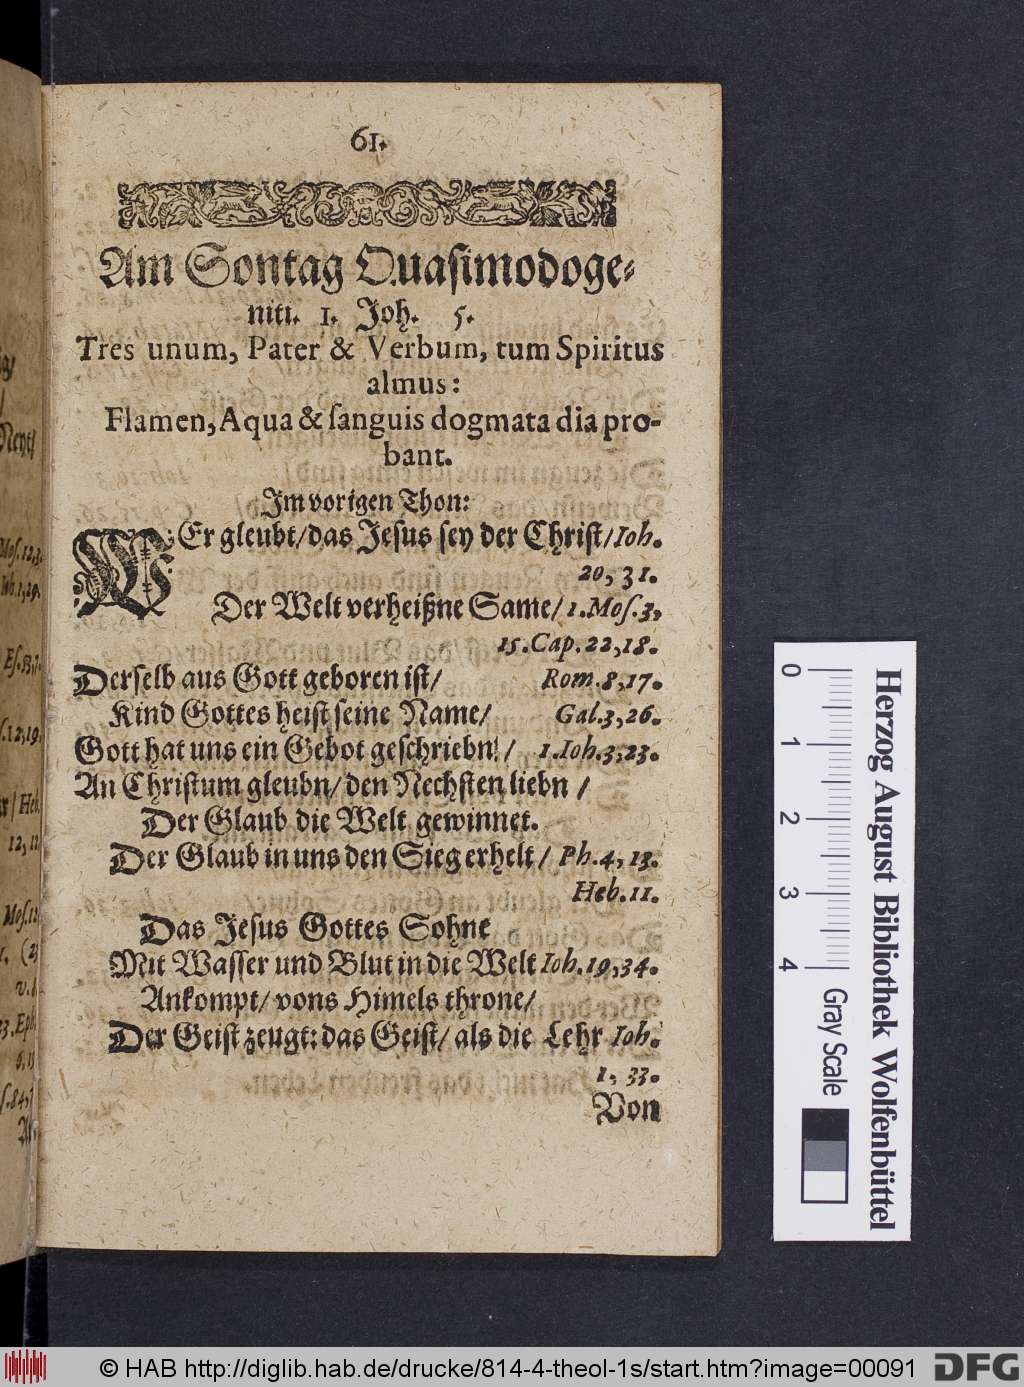 61.
Am Sontag Quaſimodoge⸗
niti. 1. Joh. 5.
Tres unum, Pater & Verbum, tum Spiritus
almus:
Flamen, Aqua & ſanguis dogmata dia pro-
bant.
Im vorigen Thon:
WEr gleubt/das Jeſus ſey der Chriſt/Ioh.
20, 31.
Der Welt verheißne Same/1.Moſ.3,
15.Cap.22,18.
Derſelb aus Gott geboren iſt/ Rom.8,17.
Kind Gottes heiſt ſeine Name/ Gal.3,26.
Gott hat uns ein Gebot geſchriebn!/ 1.Ioh.3,23.
An Chriſtum gleubn/den Nechſten liebn /
Der Glaub die Welt gewinnet.
Der Glaub in uns den Sieg erhelt / Ph.4,13.
Heb.11.
Das Jeſus Gottes Sohne
Mit Waſſer und Blut in die Welt Ioh.19,34.
Ankompt/vons Himels throne/
Der Geiſt zeugt:das Geiſt/als die Lehr Ioh.
1, 33.
Von
Neyt/
Moſ.12,3.
Eſ.53,
12,19.
Heb.
12,
Moſ.
(2)
v.
Eph.
84,
0 1 2 3 4
Gray Scale
Herzog August Bibliothek Wolfenbüttel
© HAB http://diglib.hab.de/drucke/814-4-theol-1s/start.htm?image=00091
DFG